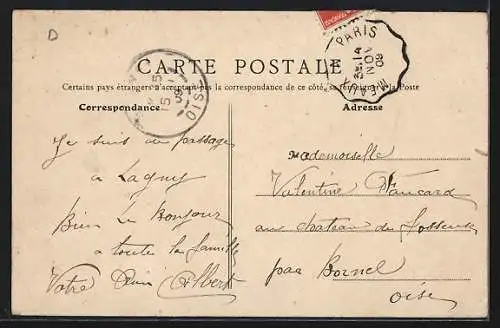 D
PARIS
14
NOV
09
CARTE POSTALE
15
09
OISE
Certains pays étrangers n'acceptant pas la correspondance de ce côté, se renseigner à la Poste
Correspondance
Adresse
Je suis de passage
à Lagny
Bien le Bonjour
a toute la famille
Votre Ami Albert
Mademoiselle
Valentine
au chateau de Fosseuse
par Bornel
Oise